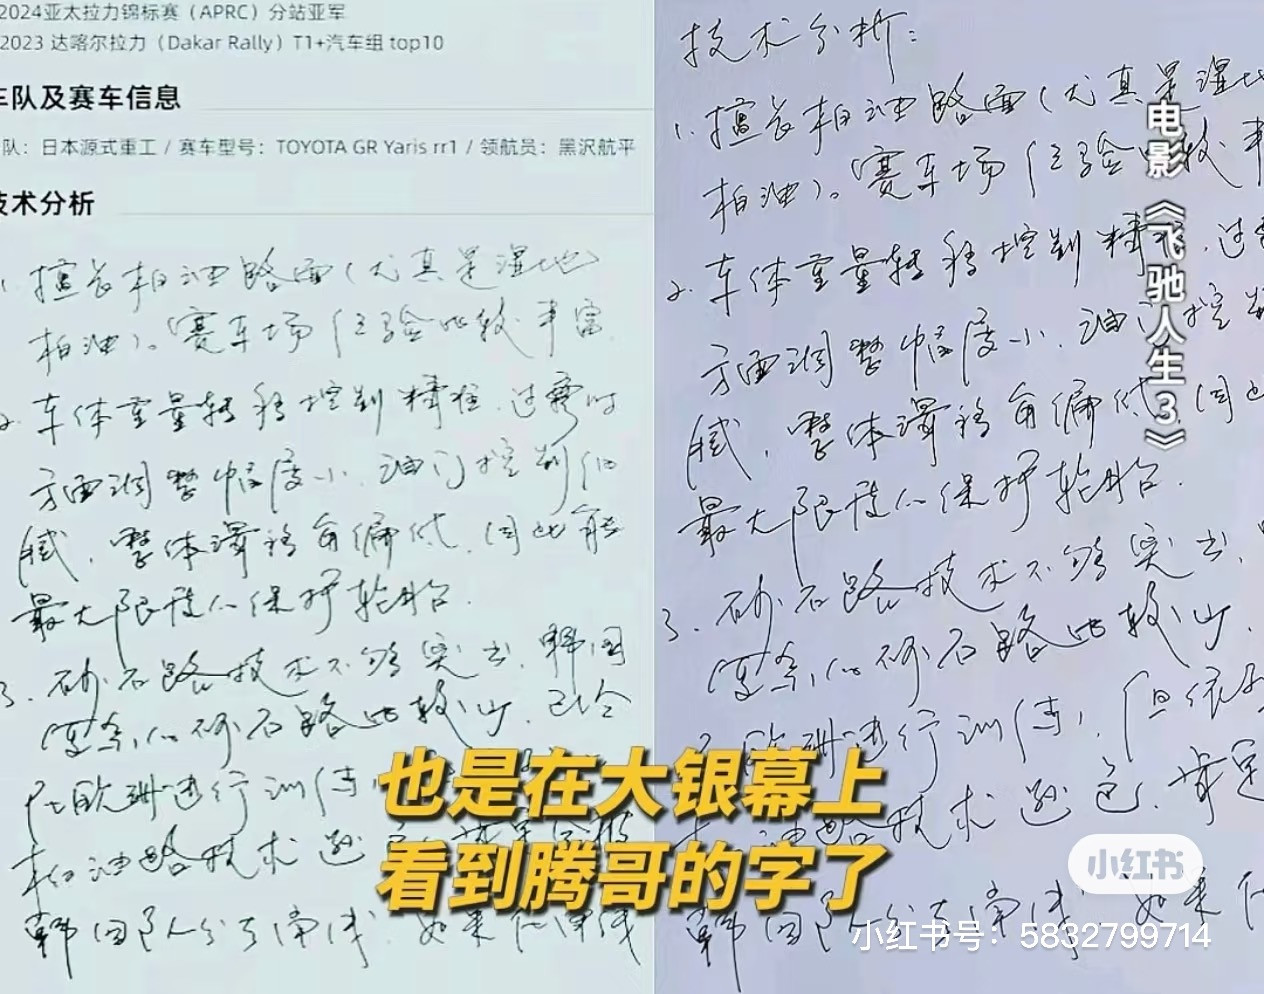 2024亚太拉力锦标赛（APRC）分站亚军
2023 达喀尔拉力（Dakar Rally）T1+汽车组 top10
车队及赛车信息
队：日本源式重工 / 赛车型号：TOYOTA GR Yaris rr1 / 领航员：黑沢航平
技术分析
1. 擅长柏油路面（尤其是湿地
柏油）。赛车场经验比较丰富.
2. 车体重量转移控制精准，过弯时
方面调整幅度小，油门控制细
腻，整体滑移角偏低，因此能
最大限度以保护轮胎.
3. 砂石路技术不够突出，韩国
国家以砂石路比较少，
在欧洲进行训练
柏油路技术逊色，
韩国队分了常
技术分析：
1. 擅长柏油路面（尤其是湿地
柏油）。赛车场经验比较丰
2. 车体重量转移控制精准，过
方面调整幅度小，油门控
腻，整体滑移角偏低，因
最大限度以保护轮胎.
3. 砂石路技术不够突出，
国家以砂石路比较少，
欧洲进行训练，但
路技术逊色，肯定
韩国队分
电影《飞驰人生3》
也是在大银幕上
看到腾哥的字了
小红书
小红书号：5832799714